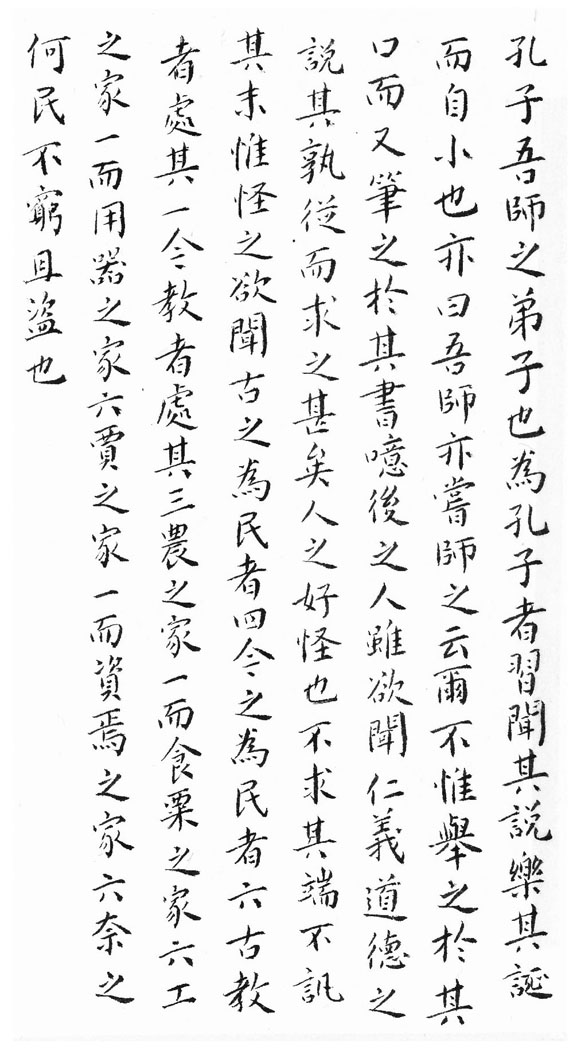 孔子吾師之弟子也為孔子者習聞其說樂其誕
而自小也亦曰吾師亦嘗師之云爾不惟舉之於其
口而又筆之於其書噫後之人雖欲聞仁義道德之
說其孰從而求之甚矣人之好怪也不求其端不訊
其末惟怪之欲聞古之為民者四今之為民者六古教
者處其一今教者處其三農之家一而食粟之家六工
之家一而用器之家六賈之家一而資焉之家六奈之
何民不窮且盜也